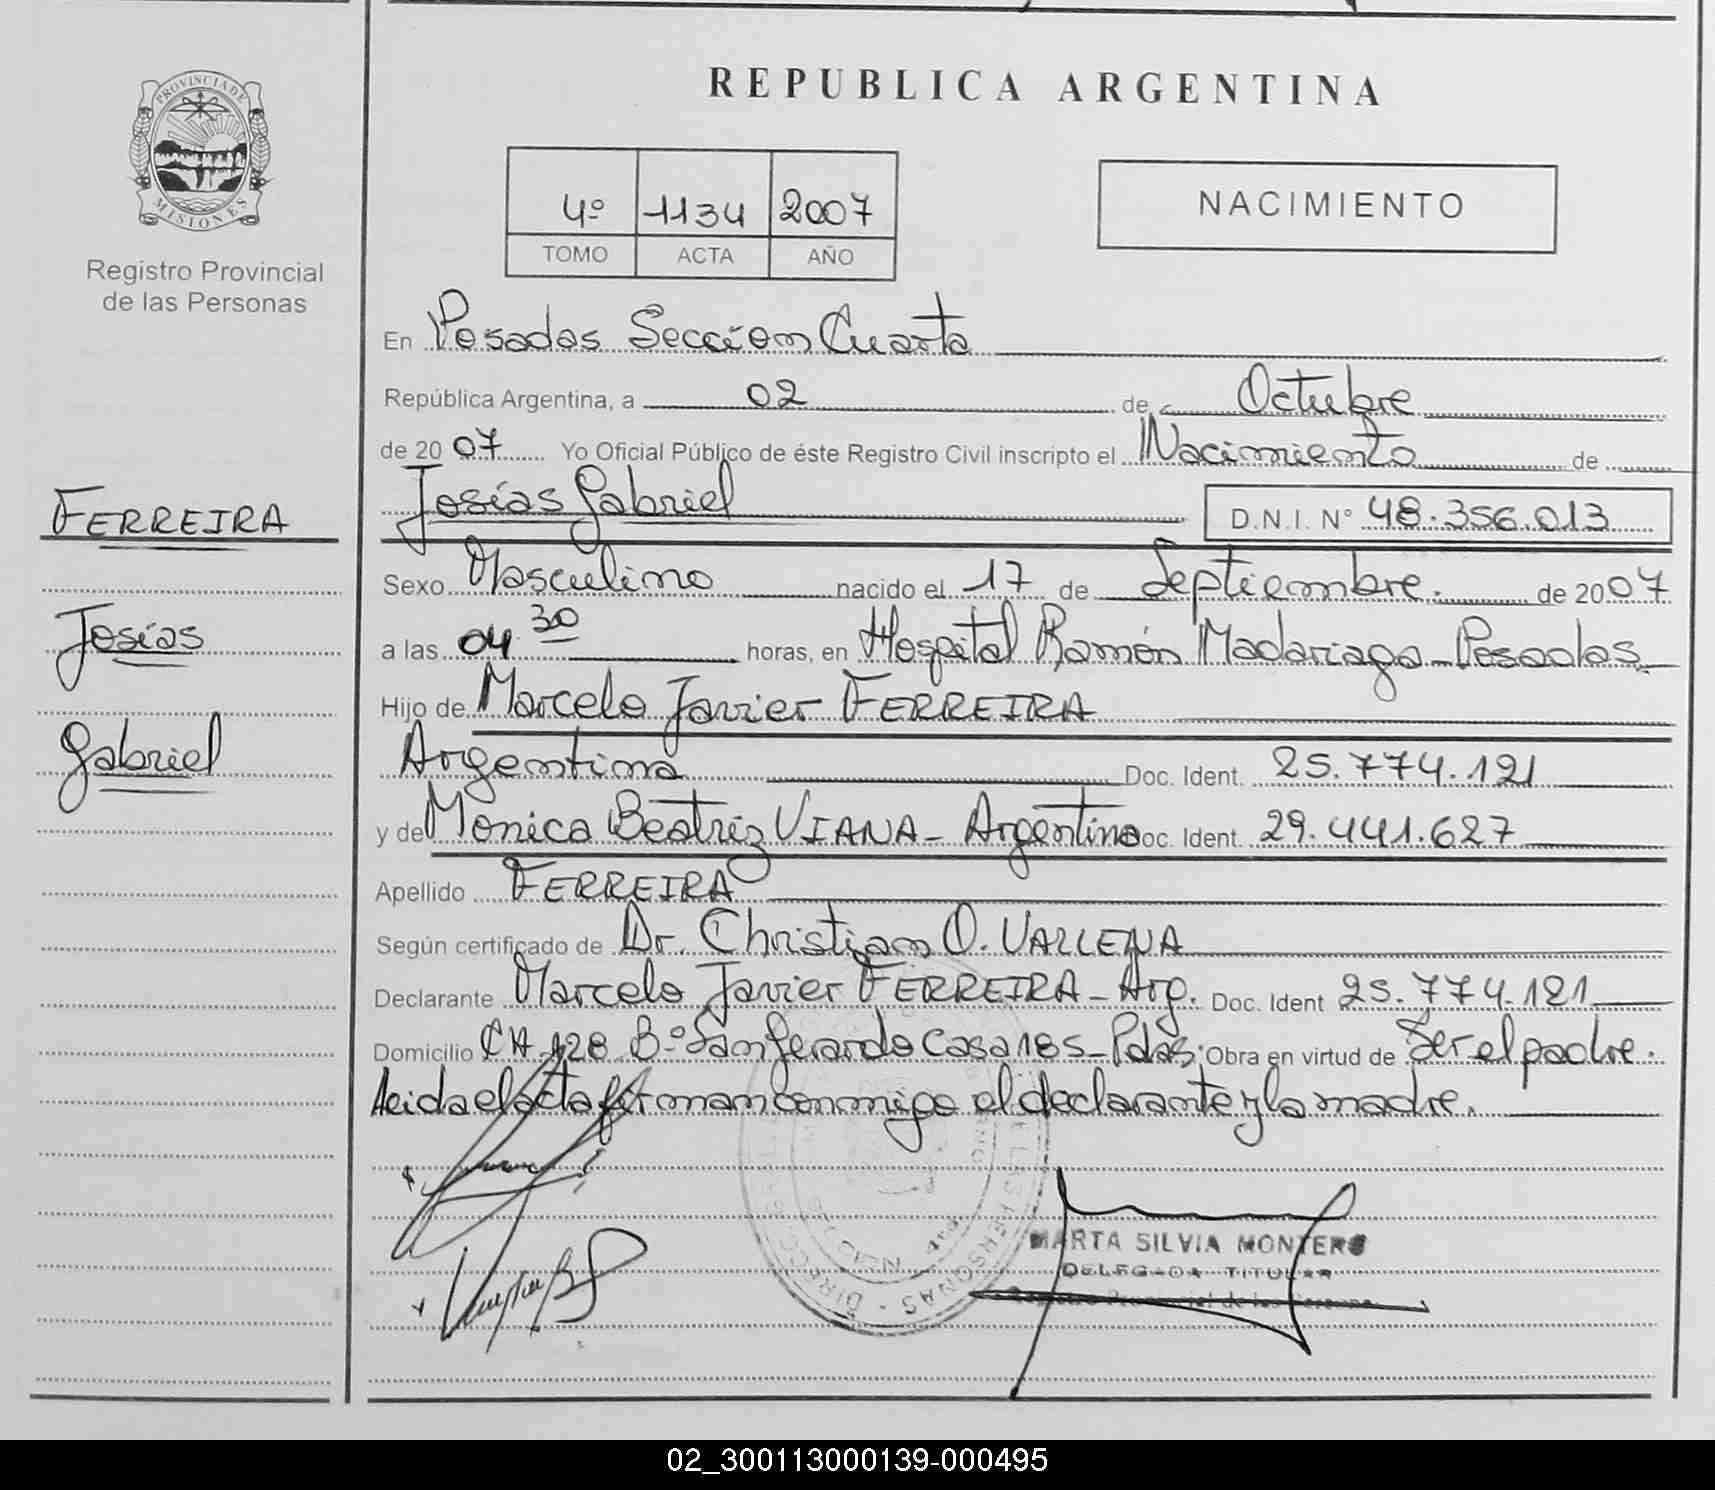 PROVINCIA DE
MISIONES
Registro Provincial
de las Personas
FERREIRA
Josías
Gabriel
REPUBLICA ARGENTINA
4º 1134 2007
TOMO ACTA AÑO
NACIMIENTO
En Posadas Sección Cuarta
República Argentina, a 02 de Octubre
de 2007 Yo Oficial Público de éste Registro Civil inscripto el Nacimiento de
Josías Gabriel D.N.I. Nº 48.356.013
Sexo Masculino nacido el 17 de Septiembre. de 2007
a las 04.30 horas, en Hospital Ramón Madariaga - Posadas
Hijo de Marcelo Javier FERREIRA
Argentina Doc. Ident. 25.774.121
y de Monica Beatriz VIANA - Argentina Doc. Ident. 29.441.627
Apellido FERREIRA
Según certificado de Dr. Christian O. VALLENA
Declarante Marcelo Javier FERREIRA - Arg. Doc. Ident 25.774.121
Domicilio CH 128 Bº San Gerardo Casa 185 - Pdas. Obra en virtud de Ser el padre.
Leida el acta firman conmigo el declarante y la madre.
MARTA SILVIA MONTERO
DELEGADA TITULAR
Registro Provincial de las Personas
02_300113000139-000495